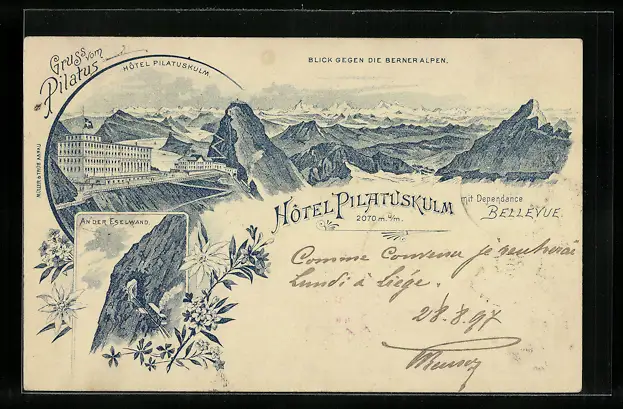 Gruss vom
Pilatus
HÔTEL PILATUSKULM.
BLICK GEGEN DIE BERNERALPEN.
MÜLLER & TRÜB AARAU
HÔTEL PILATUSKULM
2070 m. ü/m.
mit Dependance
BELLEVUE.
AN DER ESELWAND.
Comme convenu je rentrerai
Lundi à Liége.
28.8.97